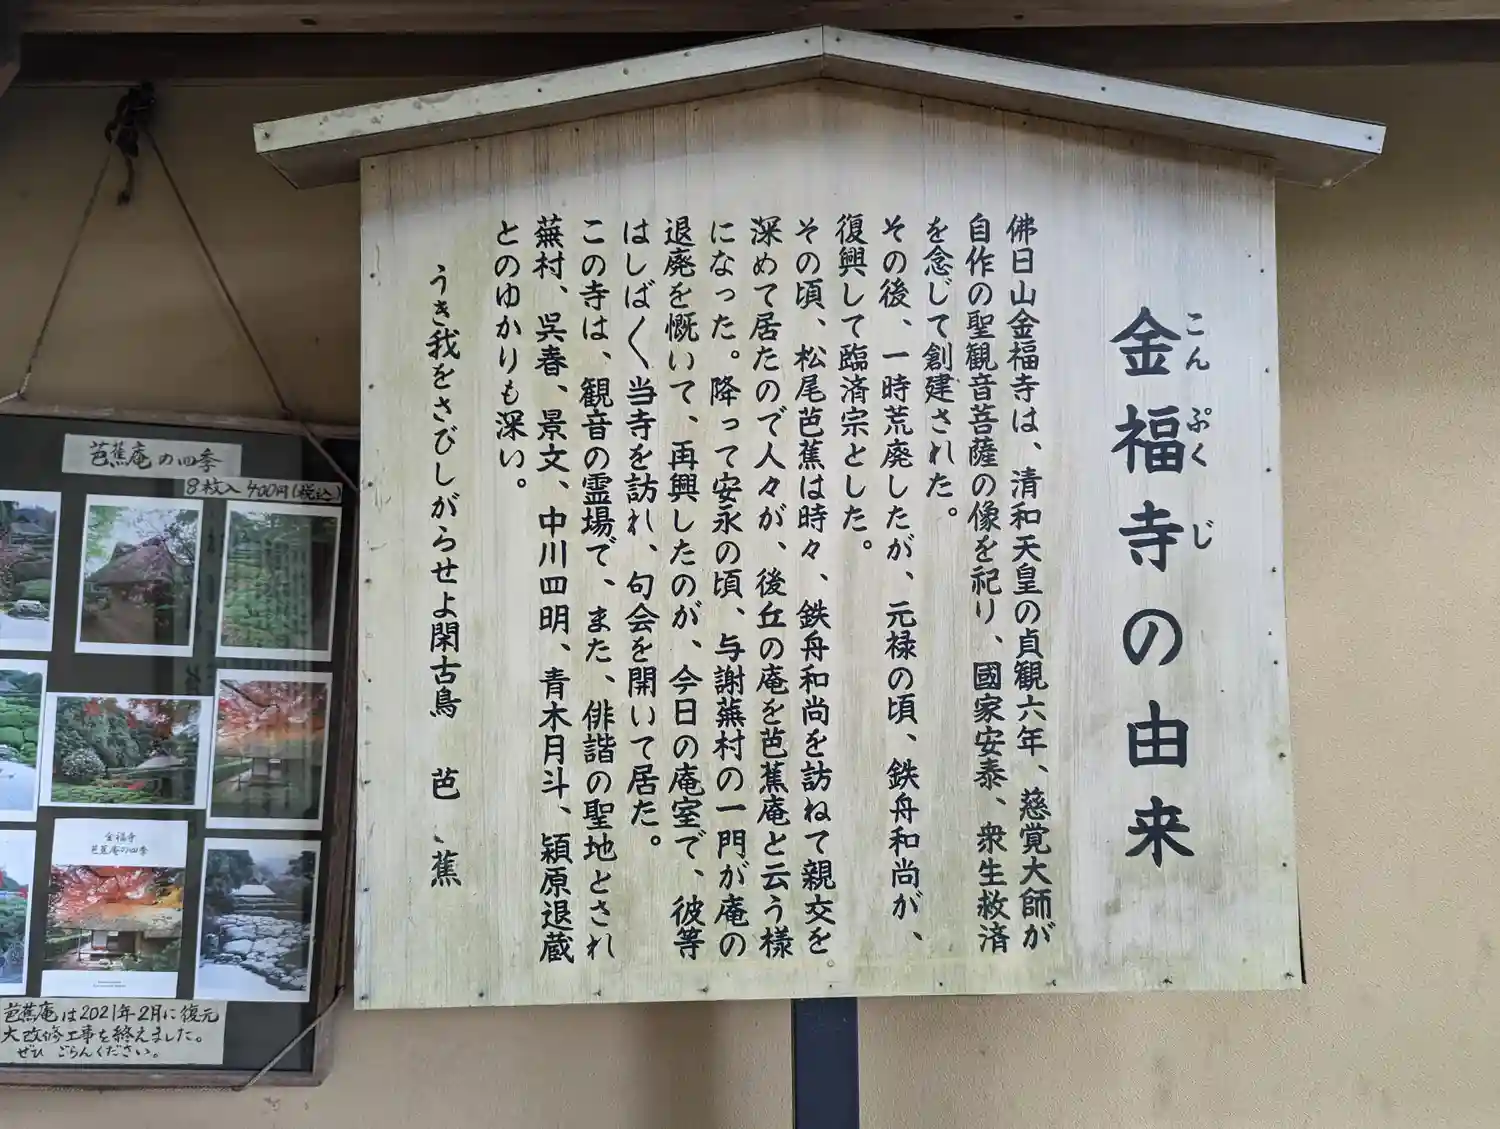 金福寺の由来
こんぷくじ
佛日山金福寺は、清和天皇の貞観六年、慈覚大師が
自作の聖観音菩薩の像を祀り、國家安泰、衆生救済
を念じて創建された。
その後、一時荒廃したが、元禄の頃、鉄舟和尚が、
復興して臨済宗とした。
その頃、松尾芭蕉は時々、鉄舟和尚を訪ねて親交を
深めて居たので人々が、後丘の庵を芭蕉庵と云う様
になった。降って安永の頃、与謝蕪村の一門が庵の
退廃を慨いて、再興したのが、今日の庵室で、彼等
はしば〱当寺を訪れ、句会を開いて居た。
この寺は、観音の霊場で、また、俳諧の聖地とされ
蕪村、呉春、景文、中川四明、青木月斗、穎原退蔵
とのゆかりも深い。
うき我をさびしがらせよ閑古鳥 芭蕉
芭蕉庵の四季
8枚入 400円(税込)
金福寺
芭蕉庵の四季
芭蕉庵は2021年2月に復元
大改修工事を終えました。
ぜひ ごらんください。